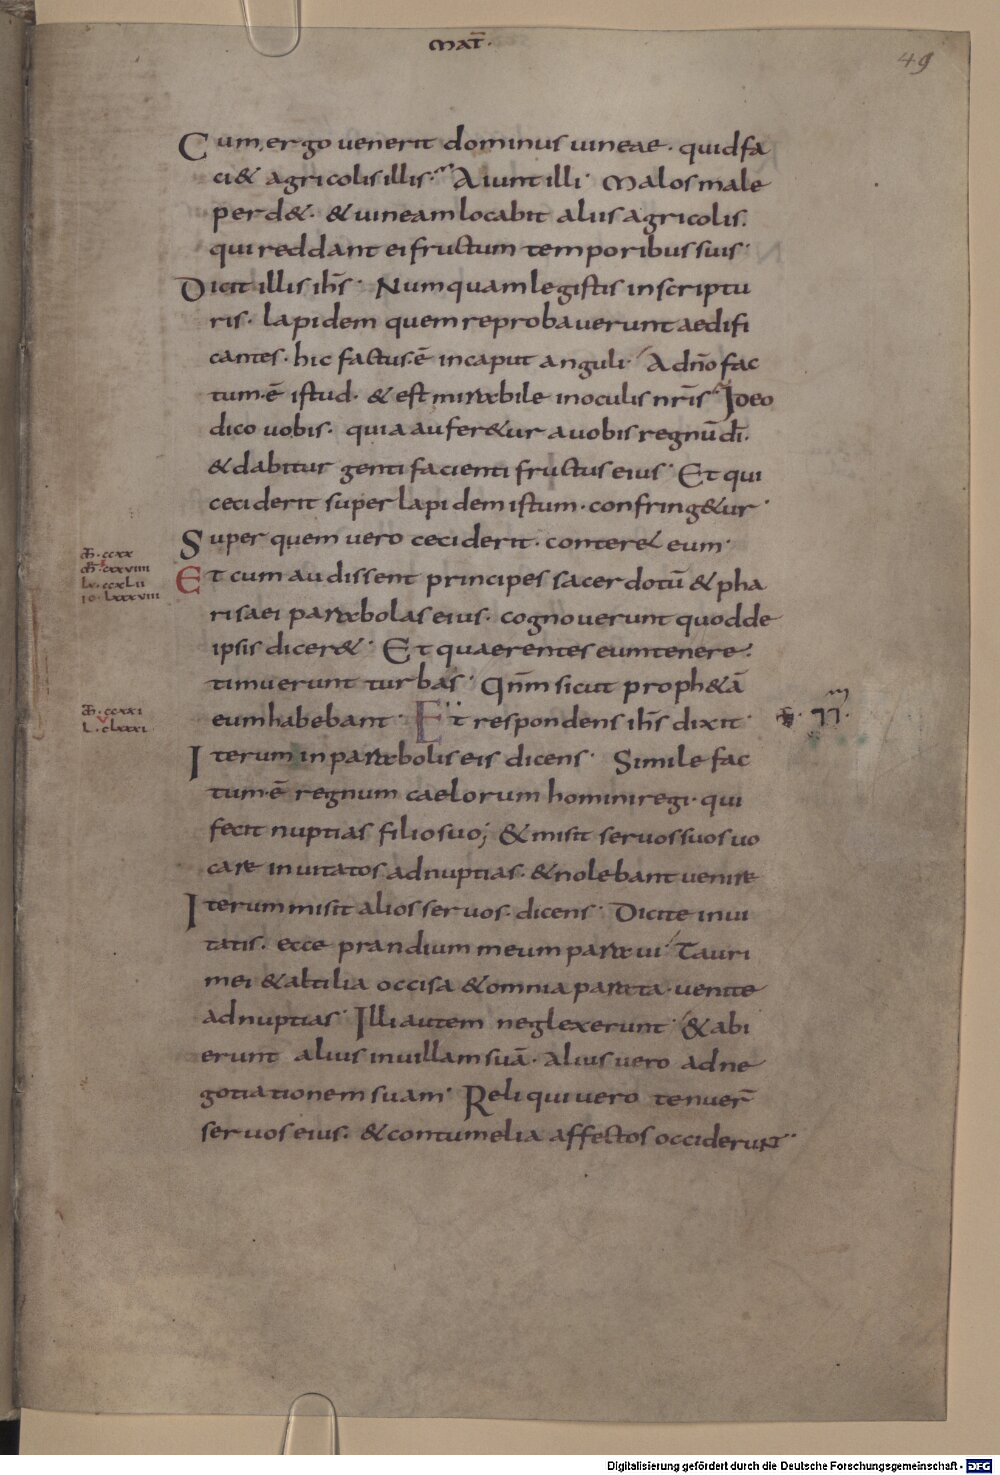 MAT̄·
49
Cum ergo venerit dominus uineae· quid fa
ci& agricolis illis· Aiunt illi· Malos male
perd&· & uineam locabit aliis agricolis·
qui reddant ei fructum temporibus suis·
Dicit illis ihs̄· Numquam legistis in scriptu
ris· lapidem quem reprobauerunt aedifi
cantes· hic factus·ē in caput anguli· A dn̄o fac
tum·ē istud· & est mirabile in oculis nr̄is· Ideo
dico uobis· quia aufer&ur a uobis regnū dī·
& dabitur genti facienti fructus eius· Et qui
ceciderit super lapidem istum· confring&ur·
Super quem uero ceciderit· conter& eum·
Et cum audissent principes sacerdotū & pha
risaei parabolas eius· cognouerunt quod de
ipsis dicer&· Et quaerentes eum tenere·
timuerunt turbas· Qn̄m sicut proph&ā
eum habebant· Et respondens ihs̄ dixit·
Iterum in parabolis eis dicens· Simile fac
tum·ē regnum caelorum homini regi· qui
fecit nuptias filio suo; & misit seruos suos uo
care inuitatos ad nuptias· & nolebant uenire
Iterum misit alios seruos· dicens· Dicite inui
tatis· ecce prandium meum paraui· Tauri
mei & altilia occisa & omnia parata· uenite
ad nuptias· Illi autem neglexerunt· & abi
erunt alius in uillam suā· Alius uero ad ne
gotiationem suam· Reliqui uero tenuer̄
seruos eius· & contumelia affectos occiderunt··
ccxx
cxxviiii
ccxlii
lxxxviii
ccxxi
clxxxi